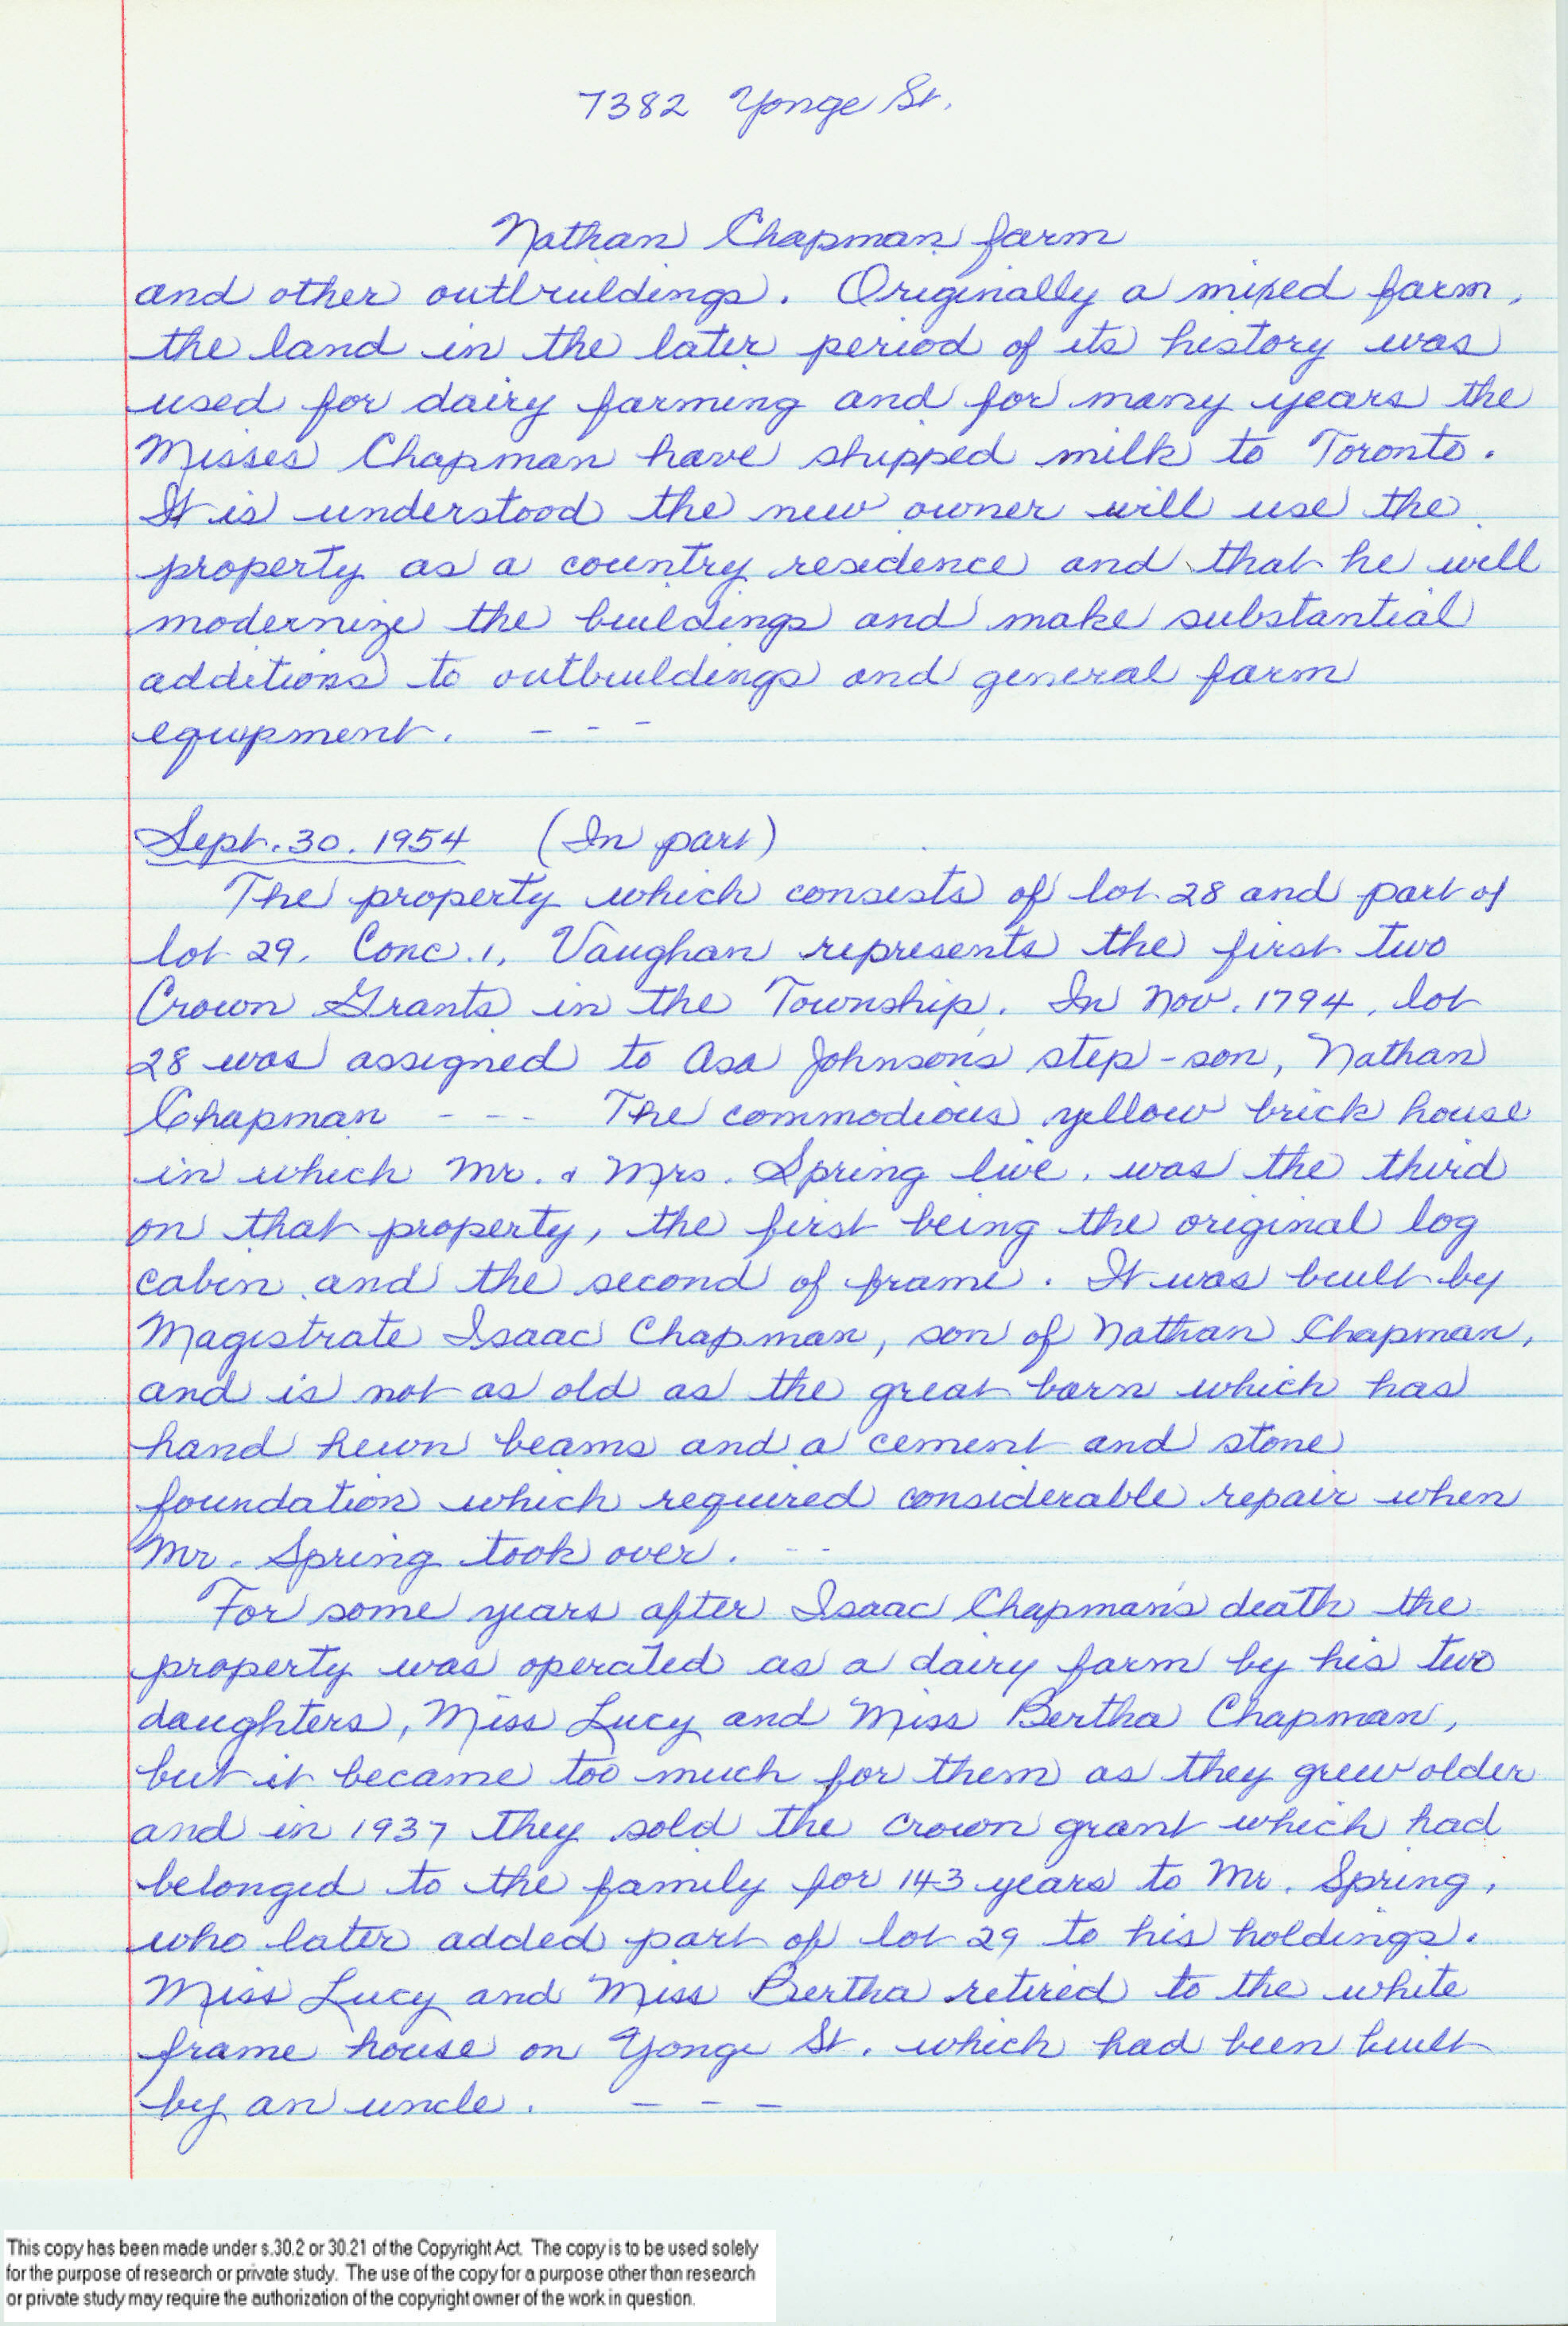 7382 Yonge St.
Nathan Chapman farm
and other outbuildings. Originally a mixed farm,
the land in the later period of its history was
used for dairy farming and for many years the
Misses Chapman have shipped milk to Toronto.
It is understood the new owner will use the
property as a country residence and that he will
modernize the buildings and make substantial
additions to outbuildings and general farm
equipment. - - -
Sept. 30. 1954 (In part)
The property which consists of lot 28 and part of
lot 29. Conc. 1, Vaughan represents the first two
Crown Grants in the Township. In Nov. 1794, lot
28 was assigned to Asa Johnson's step-son, Nathan
Chapman - - - The commodious yellow brick house
in which Mr. & Mrs. Spring live, was the third
on that property, the first being the original log
cabin and the second of frame. It was built by
Magistrate Isaac Chapman, son of Nathan Chapman,
and is not as old as the great barn which has
hand hewn beams and a cement and stone
foundation which required considerable repair when
Mr. Spring took over. - -
For some years after Isaac Chapman's death the
property was operated as a dairy farm by his two
daughters, Miss Lucy and Miss Bertha Chapman,
but it became too much for them as they grew older
and in 1937 they sold the crown grant which had
belonged to the family for 143 years to Mr. Spring,
who later added part of lot 29 to his holdings.
Miss Lucy and Miss Bertha retired to the white
frame house on Yonge St. which had been built
by an uncle. - - -
This copy has been made under s.30.2 or 30.21 of the Copyright Act. The copy is to be used solely
for the purpose of research or private study. The use of the copy for a purpose other than research
or private study may require the authorization of the copyright owner of the work in question.